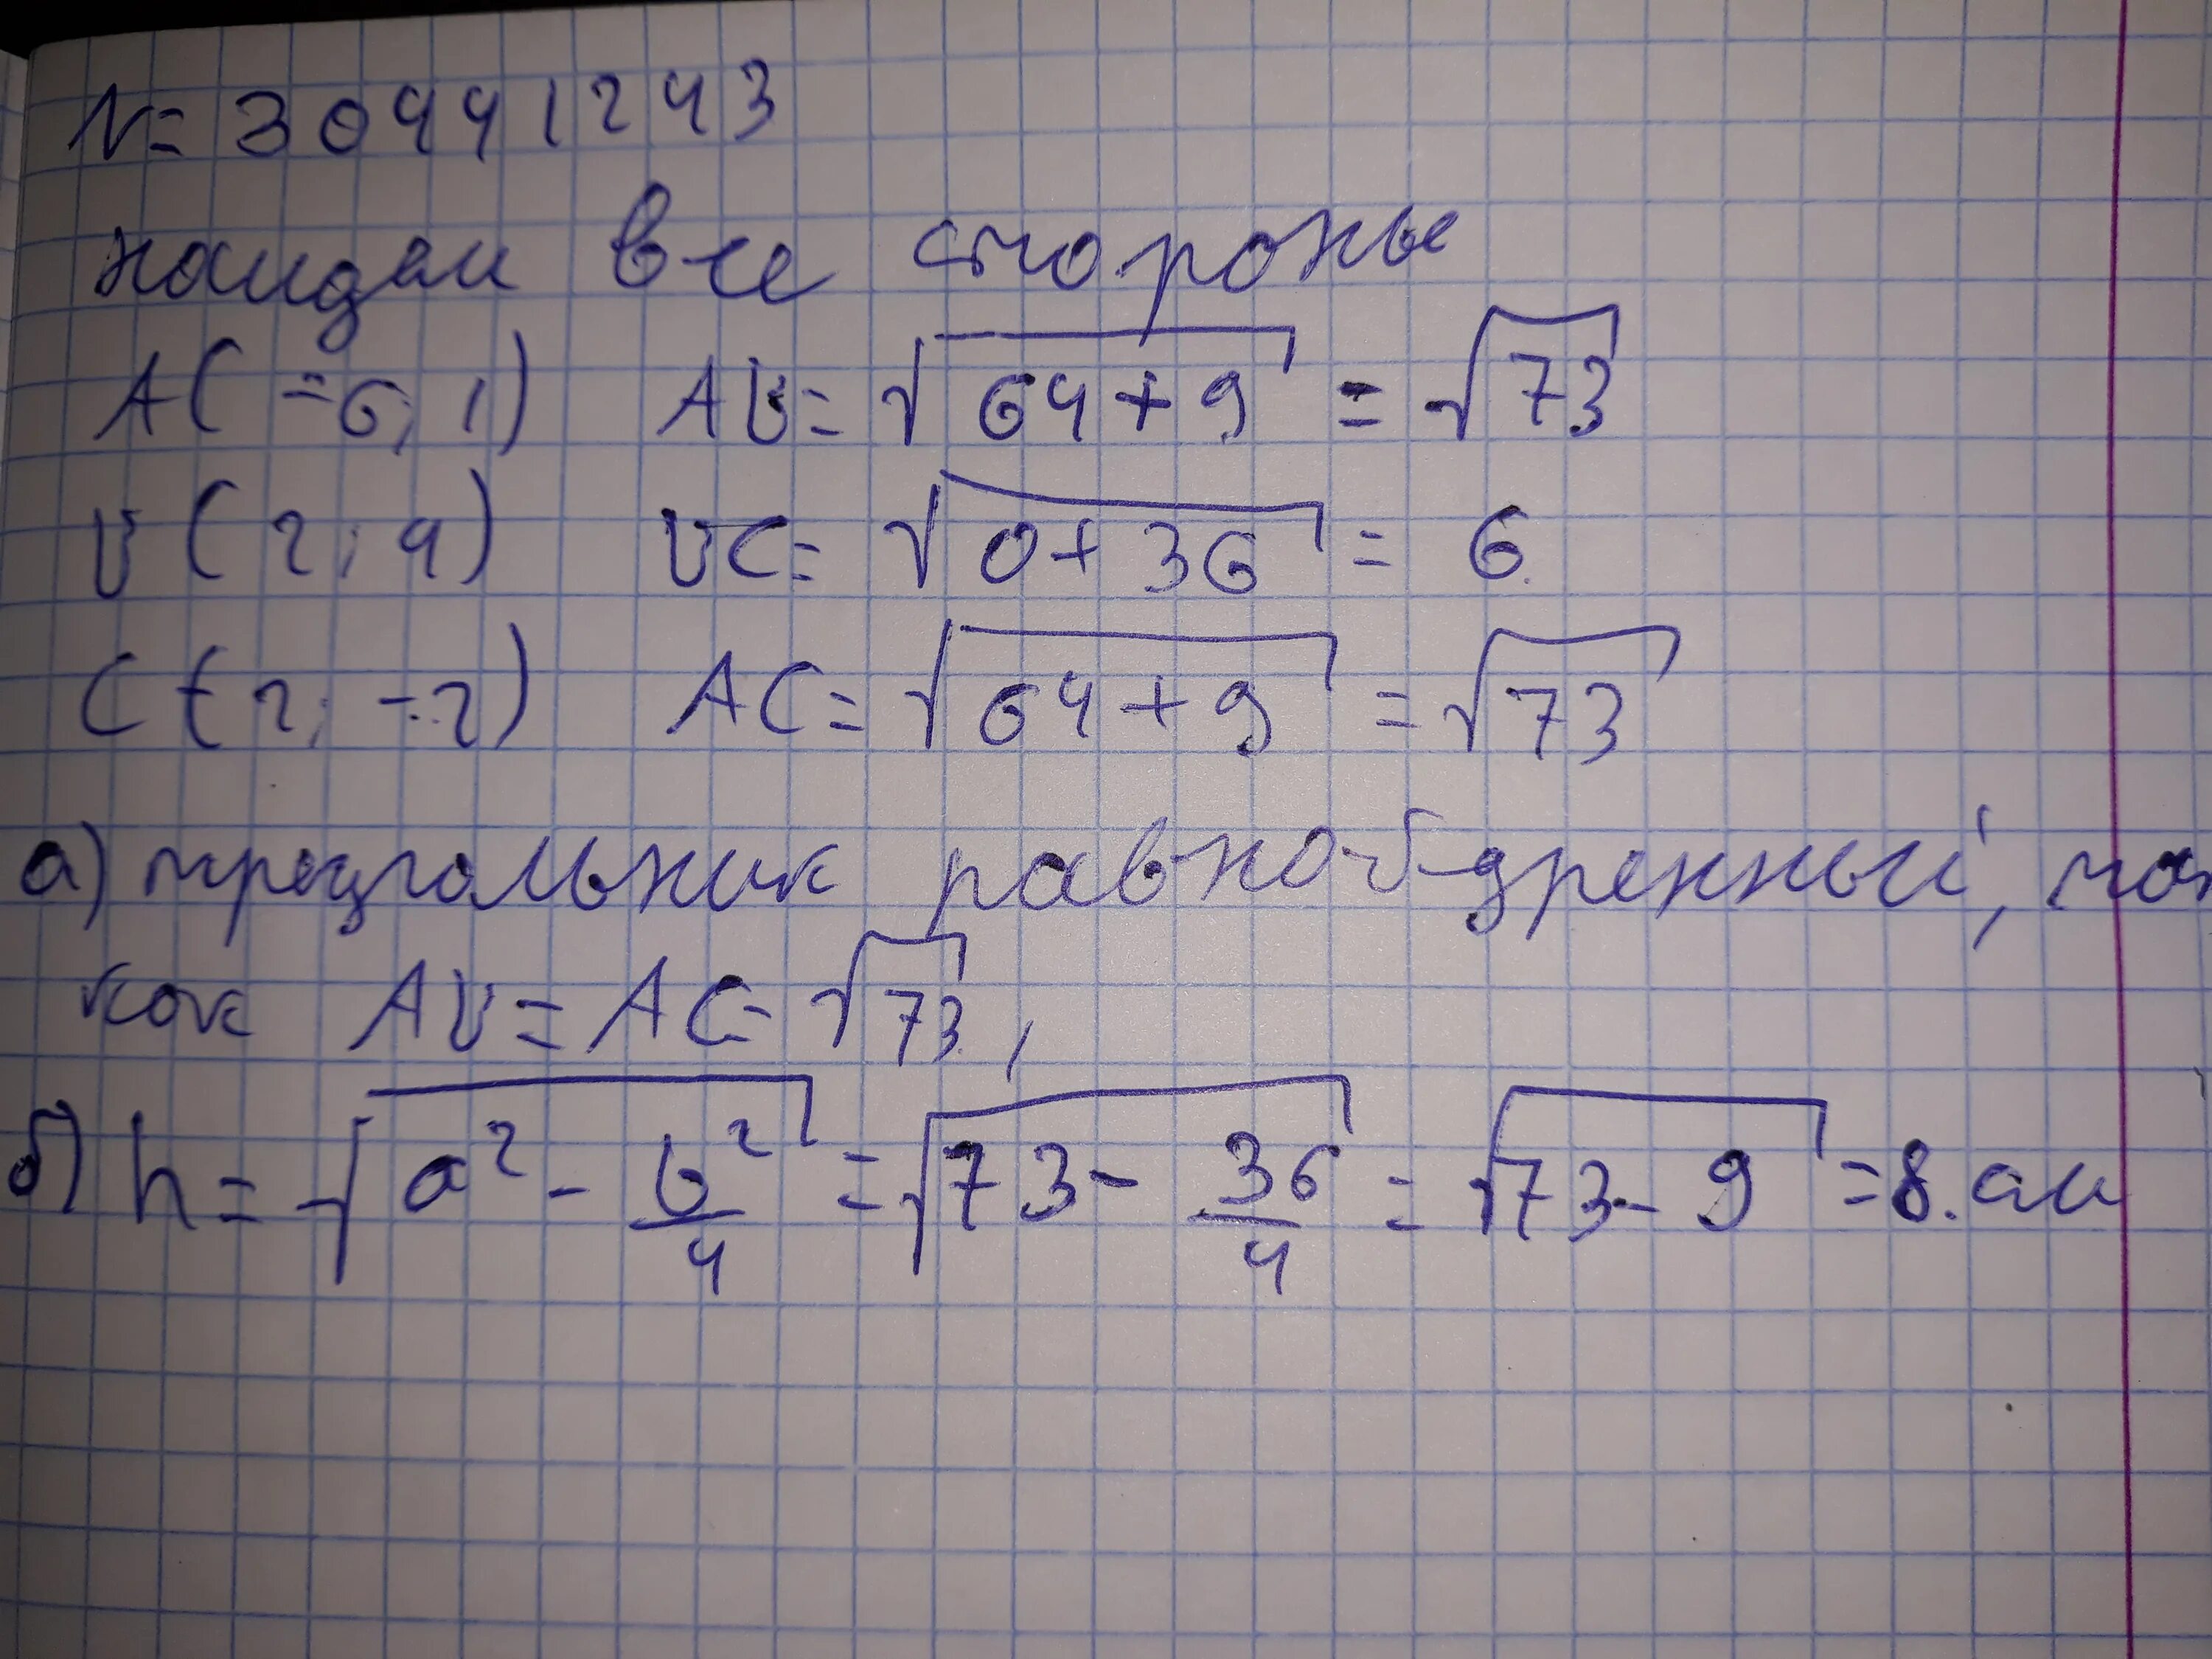 N= 30441243
найдем все стороны
A(-6; 1) AB= √64+9 = √73
B(2; 4) BC= √0+36 = 6
C(2; -2) AC= √64+9 = √73
а) треугольник равнобедренный, так
как AB=AC=√73,
б) h= √a² - b²/4 = √73- 36/4 = √73-9 =8. см